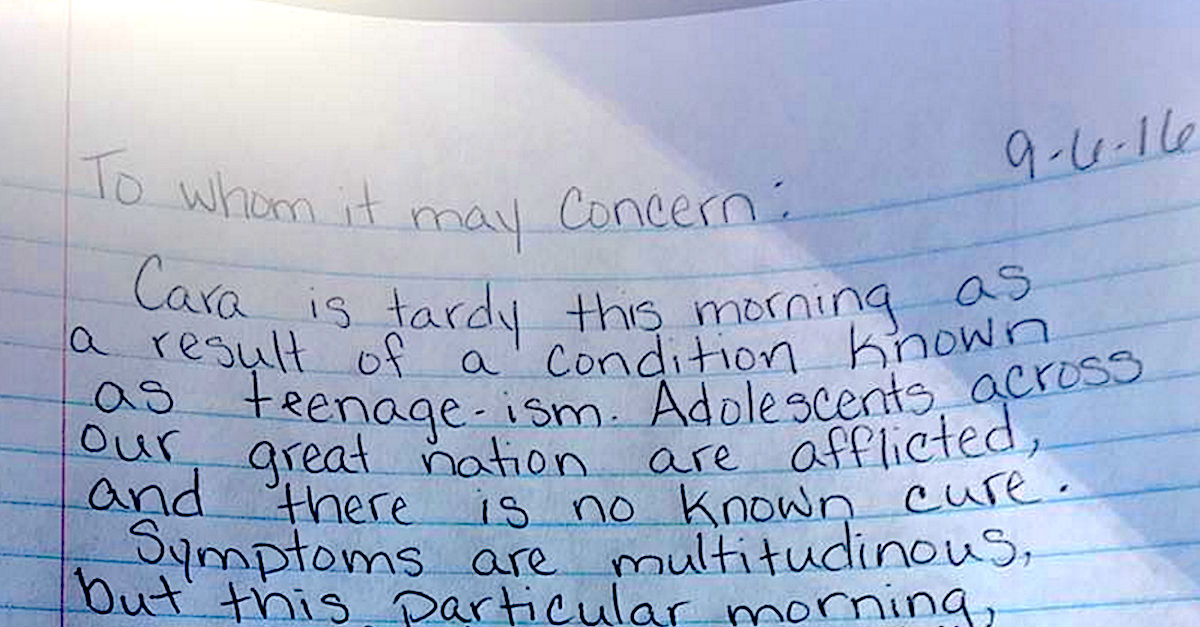 9-6-16
To whom it may concern:
Cara is tardy this morning as
a result of a condition known
as teenage-ism. Adolescents across
our great nation are afflicted,
and there is no known cure.
Symptoms are multitudinous,
but this particular morning,